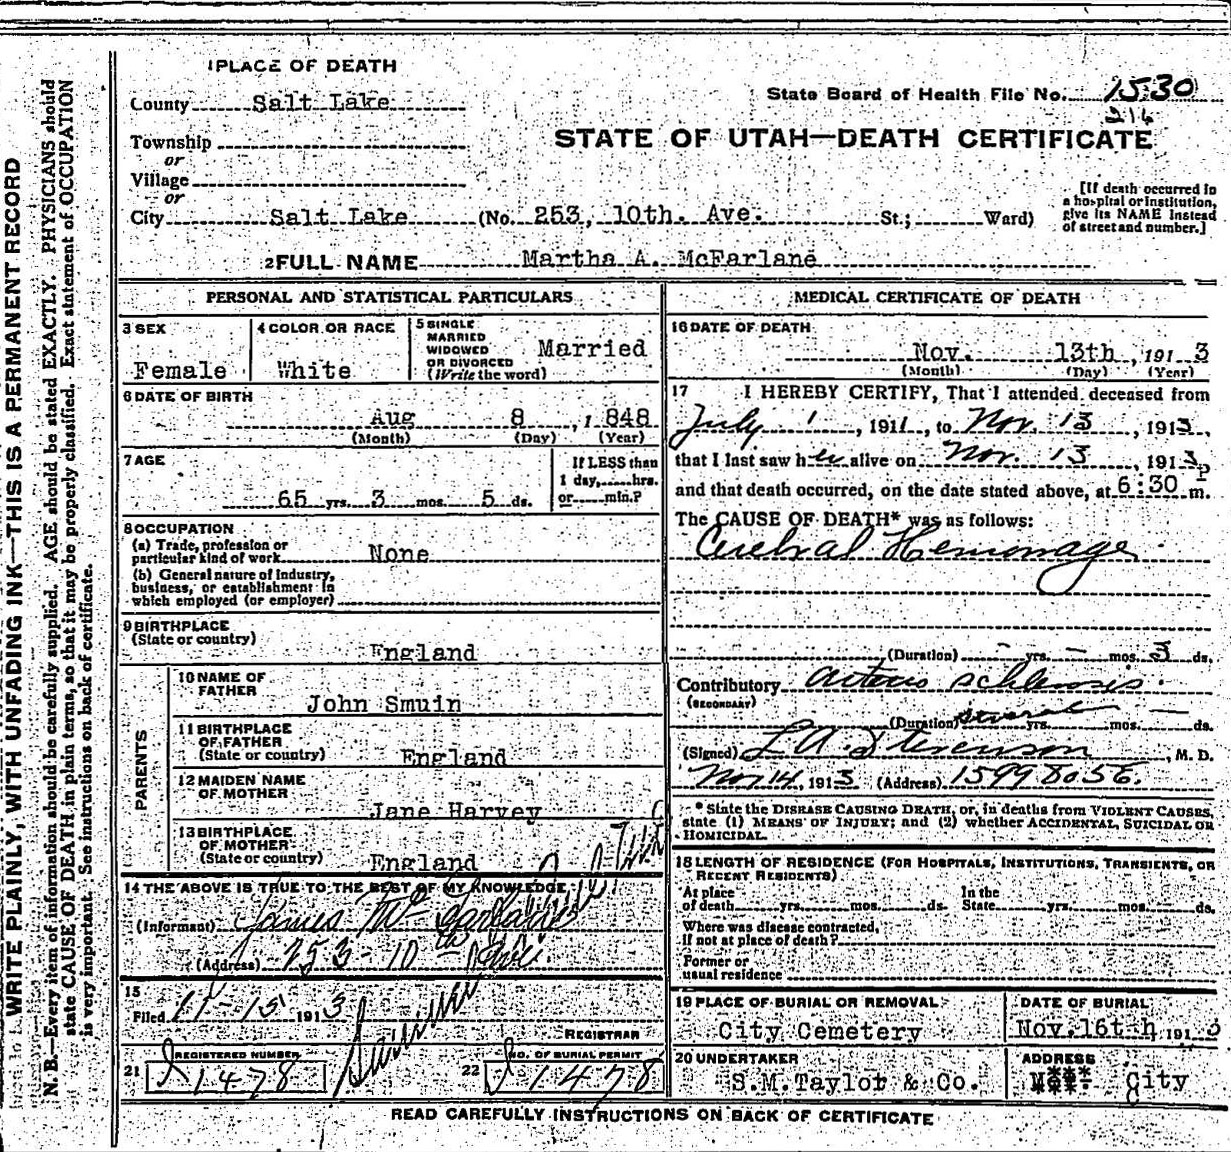 1 PLACE OF DEATH
County Salt Lake
State Board of Health File No. 1530
216
Township
STATE OF UTAH—DEATH CERTIFICATE
or
Village
or
City Salt Lake (No. 253, 10th. Ave. St.; Ward)
[If death occurred in a hospital or institution, give its NAME instead of street and number.]
2 FULL NAME Martha A. McFarlane
PERSONAL AND STATISTICAL PARTICULARS
3 SEX
Female
4 COLOR OR RACE
White
5 SINGLE
MARRIED
WIDOWED
OR DIVORCED
(Write the word)
Married
6 DATE OF BIRTH
Aug 8, 1848
(Month) (Day) (Year)
7 AGE
65 yrs. 3 mos. 5 ds.
If LESS than
1 day, hrs.
or min.?
8 OCCUPATION
(a) Trade, profession or
particular kind of work None
(b) General nature of industry,
business, or establishment in
which employed (or employer)
9 BIRTHPLACE
(State or country)
England
PARENTS
10 NAME OF
FATHER
John Smuin
11 BIRTHPLACE
OF FATHER
(State or country)
England
12 MAIDEN NAME
OF MOTHER
Jane Harvey
13 BIRTHPLACE
OF MOTHER
(State or country)
England
14 THE ABOVE IS TRUE TO THE BEST OF MY KNOWLEDGE
(Informant) James Mc Farlane
(Address) 253-10th Ave.
15
Filed 11-15 1913
REGISTRAR
21 REGISTERED NUMBER
1478
22 NO. OF BURIAL PERMIT
1478
MEDICAL CERTIFICATE OF DEATH
16 DATE OF DEATH
Nov. 13th, 1913
(Month) (Day) (Year)
17 I HEREBY CERTIFY, That I attended deceased from
July 1, 1911, to Nov. 13, 1913,
that I last saw her alive on Nov. 13, 1913,
and that death occurred, on the date stated above, at 6:30 P m.
The CAUSE OF DEATH* was as follows:
Cerebral Hemorrage
(Duration) - yrs. - mos. 3 ds.
Contributory arterio schlerosis
(SECONDARY)
(Duration) several yrs. mos. — ds.
(Signed) L.A. Stevenson, M.D.
Nov 14, 1913 (Address) 1599 8 So St.
* State the DISEASE CAUSING DEATH, or, in deaths from VIOLENT CAUSES,
state (1) MEANS OF INJURY; and (2) whether ACCIDENTAL, SUICIDAL OR
HOMICIDAL.
18 LENGTH OF RESIDENCE (FOR HOSPITALS, INSTITUTIONS, TRANSIENTS, OR
RECENT RESIDENTS)
At place
of death yrs. mos. ds.
In the
State yrs. mos. ds.
Where was disease contracted,
if not at place of death?
Former or
usual residence
19 PLACE OF BURIAL OR REMOVAL
City Cemetery
DATE OF BURIAL
Nov. 16th, 1913
20 UNDERTAKER
S.M. Taylor & Co.
ADDRESS
City
READ CAREFULLY INSTRUCTIONS ON BACK OF CERTIFICATE
WRITE PLAINLY, WITH UNFADING INK—THIS IS A PERMANENT RECORD
N. B.—Every item of information should be carefully supplied. AGE should be stated EXACTLY. PHYSICIANS should
state CAUSE OF DEATH in plain terms, so that it may be properly classified. Exact statement of OCCUPATION
is very important. See instructions on back of certificate.